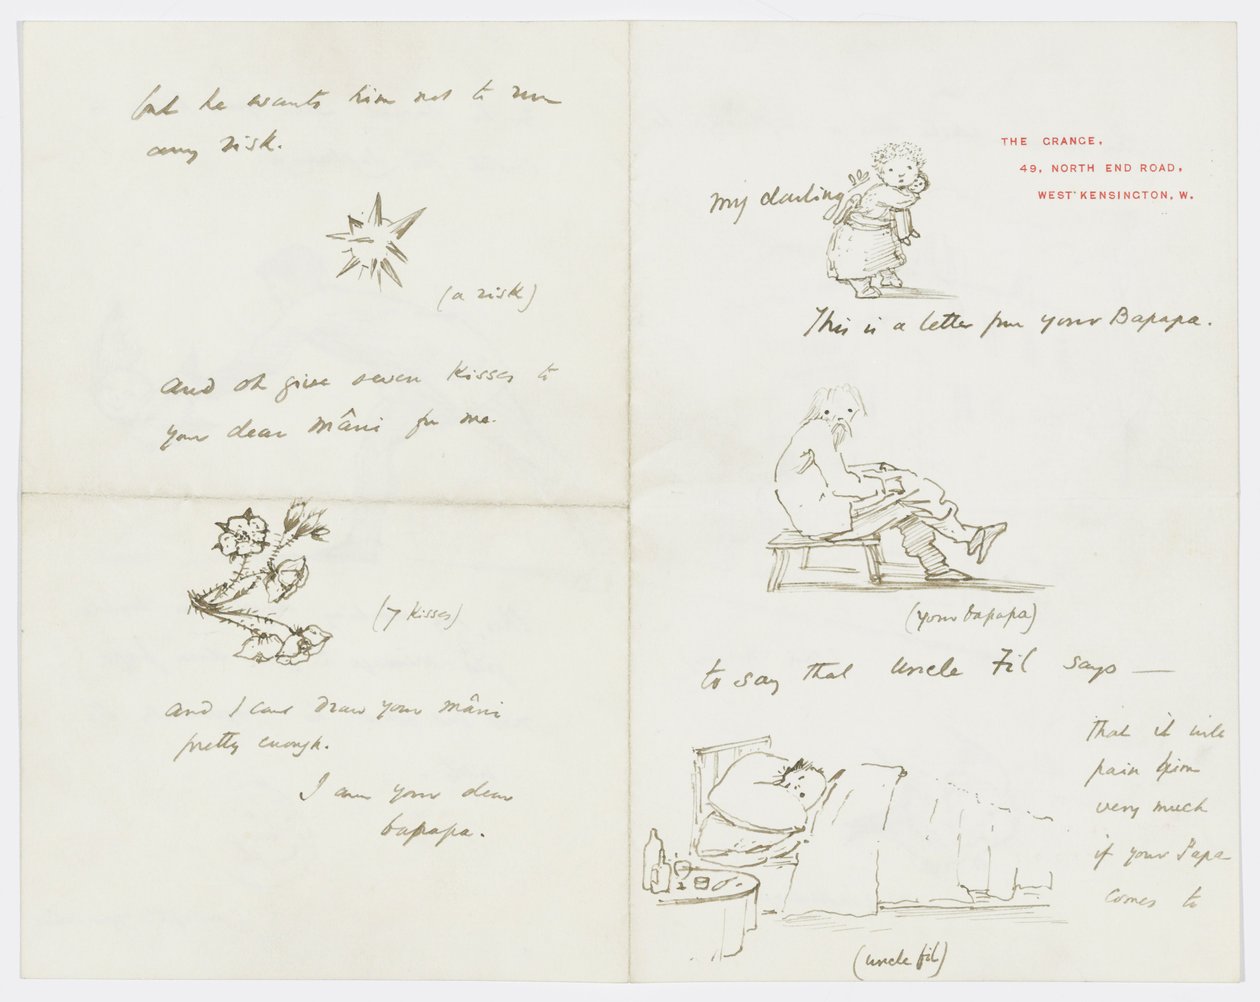 THE GRANGE,
49, NORTH END ROAD,
WEST KENSINGTON, W.
my darling
This is a letter from your Bapapa.
(your bapapa)
to say that Uncle Fil says —
that it will
pain him
very much
if your Papa
comes to
(uncle fil)
but he wants him not to run
any risk.
(a risk)
and oh give seven kisses to
your dear mâni for me.
(7 kisses)
and I can draw your mâni
pretty enough.
I am your dear
bapapa.